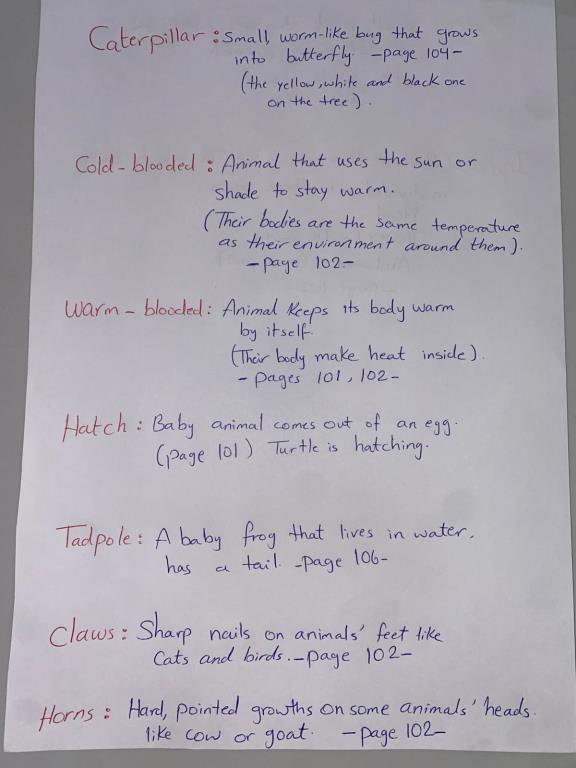 Caterpillar : Small, worm-like bug that grows
into butterfly -page 104-
(the yellow, white and black one
on the tree).
Cold-blooded : Animal that uses the sun or
shade to stay warm.
(Their bodies are the same temperature
as their environment around them).
-page 102-
Warm-blooded : Animal keeps its body warm
by itself.
(Their body make heat inside).
- pages 101, 102-
Hatch : Baby animal comes out of an egg.
(page 101) Turtle is hatching.
Tadpole : A baby frog that lives in water.
has a tail. -page 106-
Claws : Sharp nails on animals' feet like
Cats and birds. -page 102-
Horns : Hard, pointed growths on some animals' heads.
like cow or goat. -page 102-